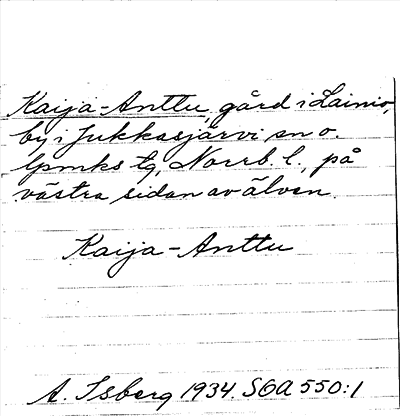 Kaija-Anttu, gård i Lainio,
by i Jukkasjärvi sn o.
lpmks tg, Norrb. l., på
västra sidan av älven.
Kaija-Anttu
A. Isberg 1934. SOA 550:1